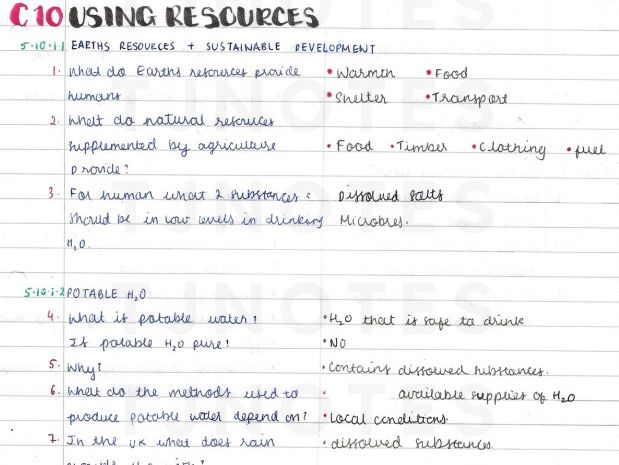 C10 USING RESOURCES
5.10.1.1 EARTHS RESOURCES + SUSTAINABLE DEVELOPMENT
1. What do Earths resources provide humans
• Warmth • Food
• Shelter • Transport
2. What do natural resources supplemented by agriculture provide?
• Food • Timber • Clothing • fuel
3. For human what 2 substances should be in low levels in drinking H₂O.
Dissolved salts
Microbes.
5.10.1.2 POTABLE H₂O
4. What is potable water?
• H₂O that is safe to drink
Is potable H₂O pure?
• NO
5. Why?
• Contains dissolved substances.
6. What do the methods used to produce potable water depend on?
• available supplies of H₂O
• Local conditions
7. In the UK what does rain
• dissolved substances.
TJNOTES
TJNOTES
TJNOTES
TJNOTES